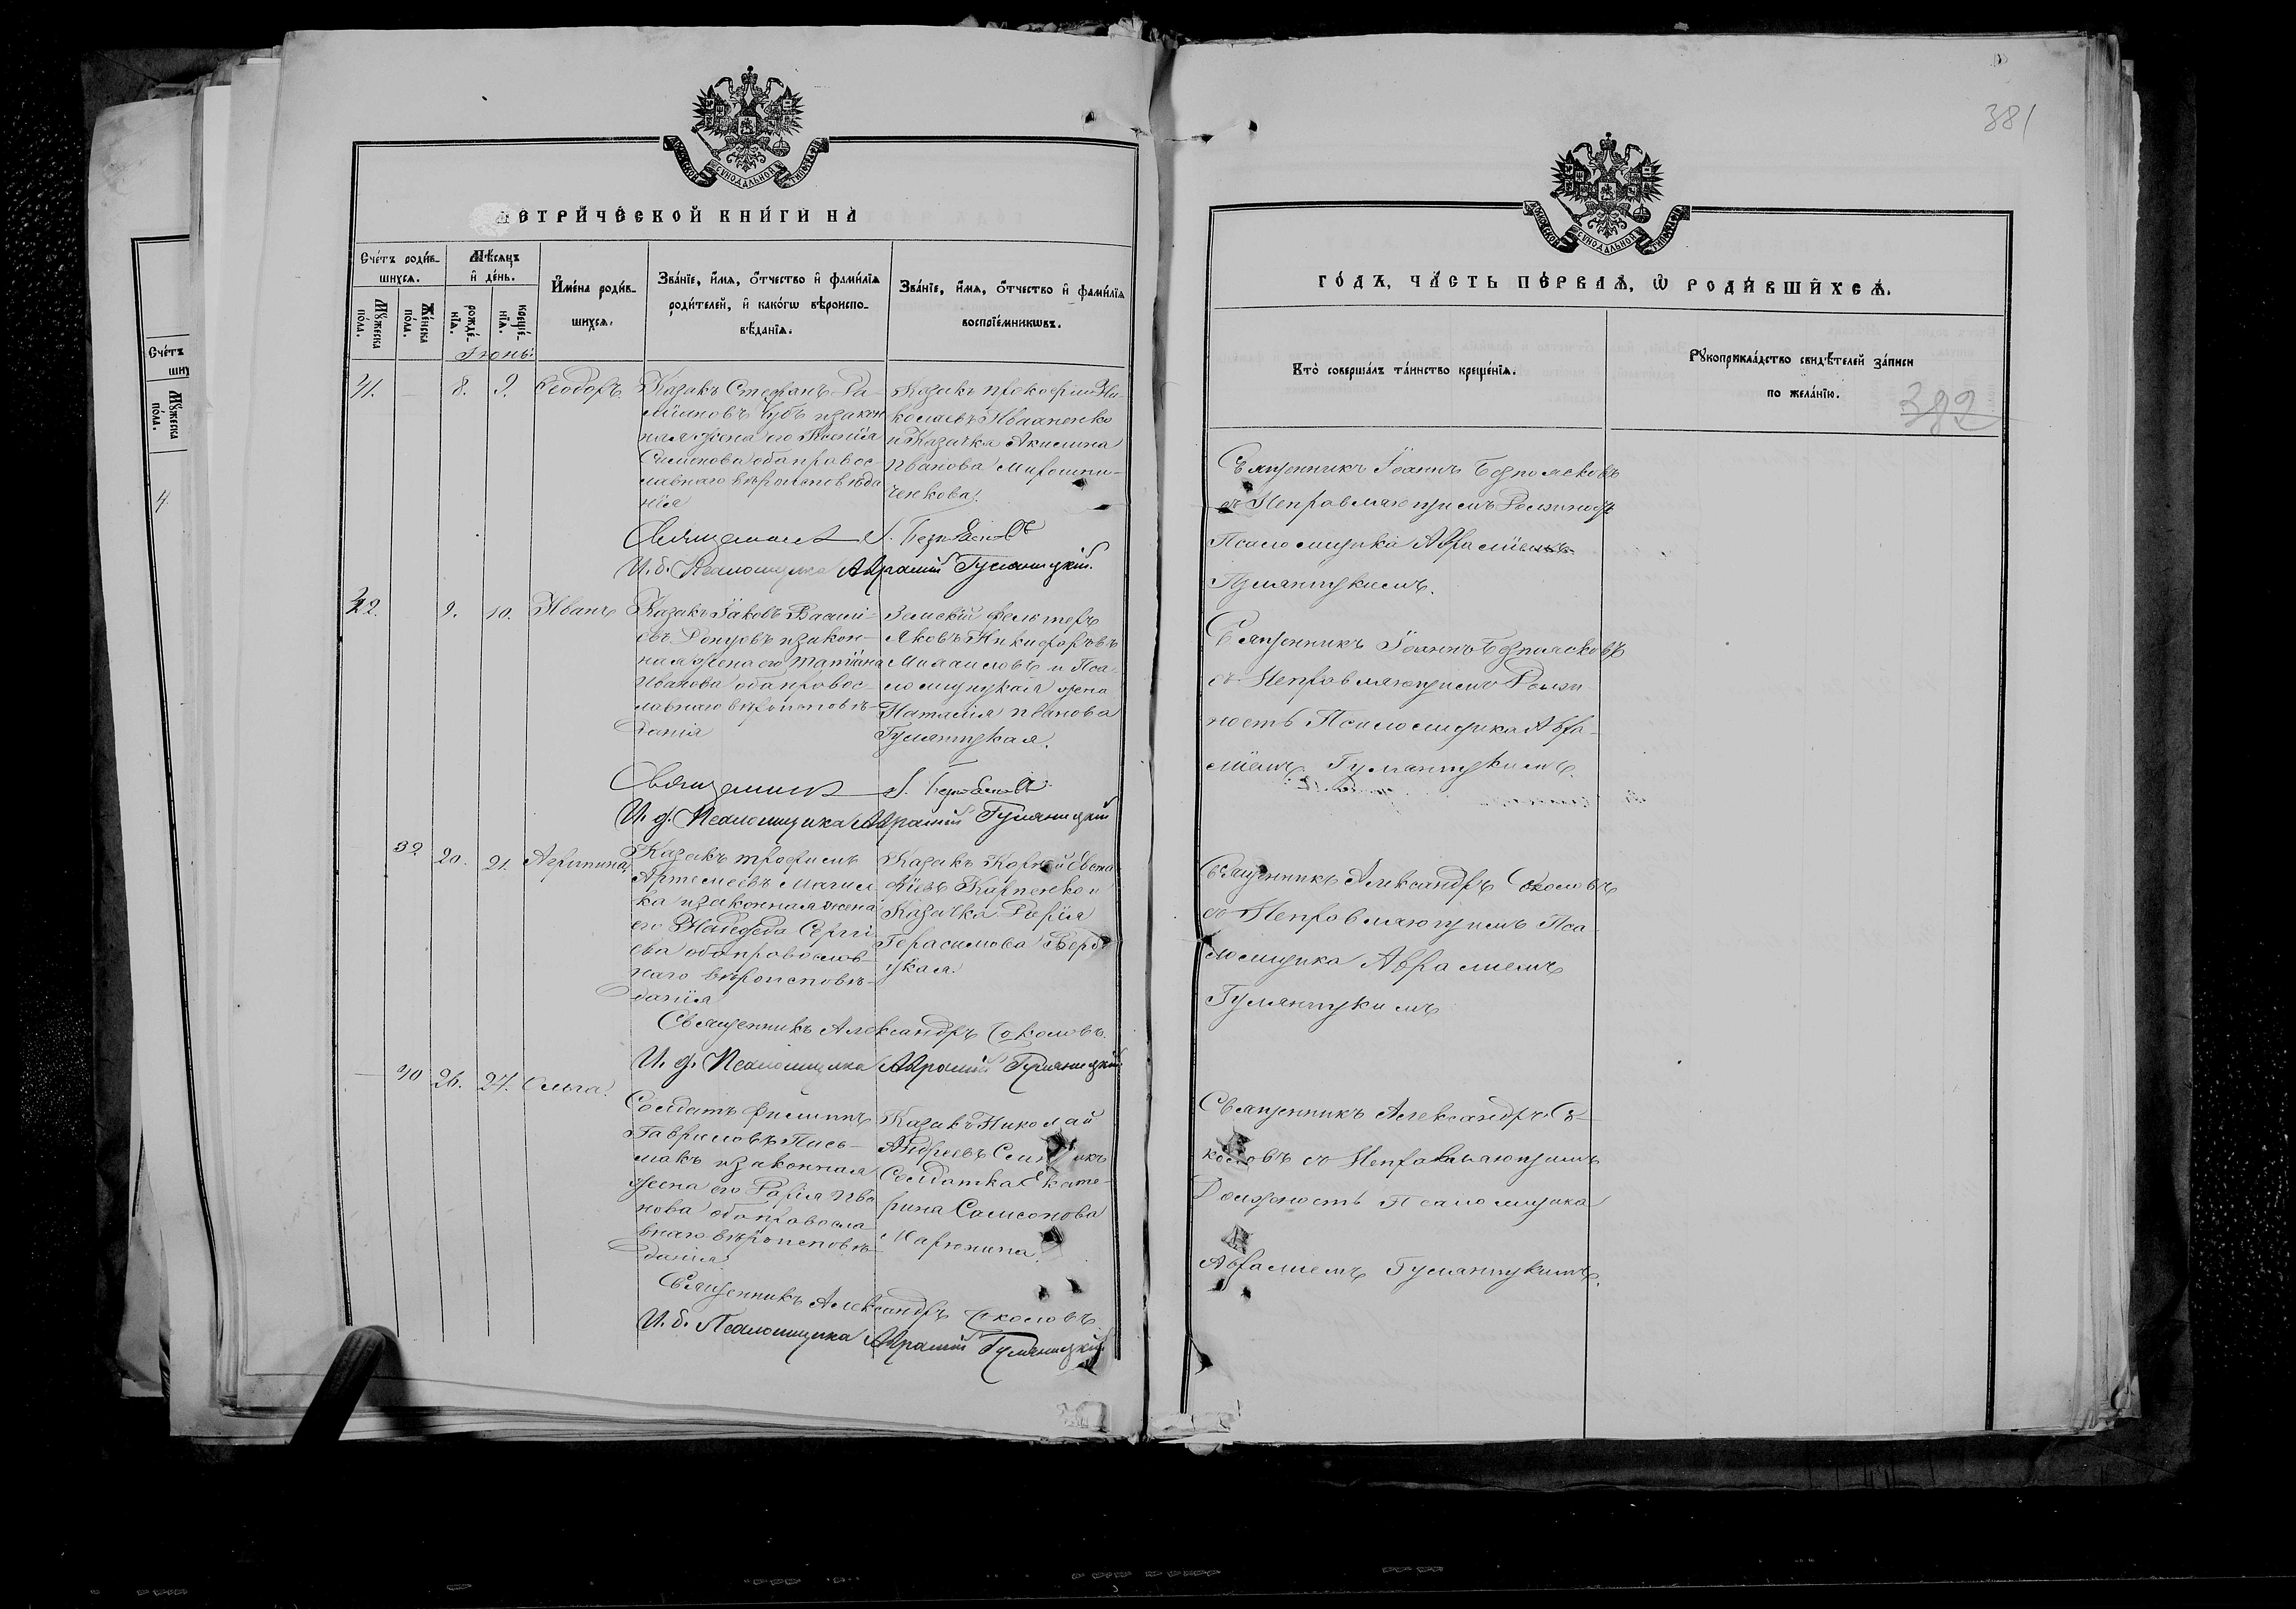 381
МОСКОВСКОЙ СѴНОДАЛЬНОЙ ТИПОГРАФІИ
МЕТРИ́ЧЕСКОЙ КНИ́ГИ НА
Сче́тъ роди́в-
шихсѧ.
Мꙋ́жеска по́ла.
Же́нска по́ла.
Мѣ́сѧцъ
и҆ де́нь.
рожде́-нїѧ.
креще́-нїѧ.
И҆мена̀ роди́в-
шихсѧ.
Зва́нїе, и҆́мѧ, ѻ҆́тчество и҆ фами́лїѧ
роди́телей, и҆ како́гѡ вѣроиспо-
вѣ́данїѧ.
Зва́нїе, и҆́мѧ, ѻ҆́тчество и҆ фами́лїѧ
воспрїе́мникѡвъ.
Іюнь.
41. — 8. 9. Ѳеодоръ
Казакъ Стефанъ Да-
міановъ Чубъ и закон
ная жена его Ксенія
Симонова оба правос-
лавнаго вѣроисповѣда
нія
Казакъ Прокофій Ни-
колаевъ Иваненко
и Казачка Акилина
Иванова Мирошни-
ченкова.
Священникъ І. Безпоясковъ
И. д. Псаломщика Аврамій Гумяницкій.
42. 9. 10. Иванъ
Казакъ Іаковъ Васили-
евъ Донцовъ и закон-
ная жена его Татіана
Иванова оба правос-
лавнаго вѣроисповѣ-
данія
Земскій фельшеръ
Яковъ Никифоровъ
и Пса-
ломщицкая жена
Наталія Иванова
Гумяницкая.
Священникъ І. Безпоясковъ
И. д. Псаломщика Аврамій Гумяницкій
39 20. 21. Агрипина
Казакъ Трофимъ
Артемиевъ Магил
ка и законная жена
его Надежда Сергі
ева оба православ-
наго вѣроисповѣ-
данія
Казакъ Корній Евста
фіевъ Карпенко и
Казачка Дарія
Герасимова
цкая.
Священникъ Александръ Соколовъ.
И. д. Псаломщика Аврамій Гумяницкій
— 40 26. 27. Ольга.
Солдатъ Филиппъ
Гавриловъ Пись-
макъ и законная
жена его Дарія Ива
нова оба правосла
внаго вѣроисповѣ-
данія
Казакъ Николай
Андреевъ
Солдатка Екате-
рина Самсонова
Священникъ Александръ Соколовъ.
И. д. Псаломщика Аврамій Гумяницкій
МОСКОВСКОЙ СѴНОДАЛЬНОЙ ТИПОГРАФІИ
ГО́ДЪ, ЧА́СТЬ ПЕ́РВАѦ, Ѡ҆ РОДИ́ВШИХСѦ.
Кто̀ соверша́лъ та́инство креще́нїѧ.
Рꙋкоприкла́дство свидѣ́телей за́писи
по жела́нїю.
382
Священникъ Іоаннъ Безпоясковъ
съ Исправляющимъ Должность
Псаломщика Авраміемъ
Гумяницкимъ.
Священникъ Іоаннъ Безпоясковъ
съ Исправляющимъ Долж-
ность Псаломщика Авра-
міемъ Гумяницкимъ.
Священникъ Александръ Соколовъ
съ Исправляющимъ Пса-
ломщика Авраміемъ
Гумяницкимъ
Священникъ Александръ Со-
коловъ съ Исправляющимъ
Должность Псаломщика
Авраміемъ Гумяницкимъ.
Сче́тъ
ших
Мꙋ́жеска по́ла.
4